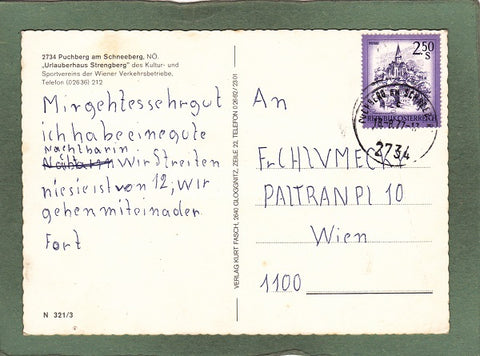 2734 Puchberg am Schneeberg, NÖ.
„Urlauberhaus Strengberg" des Kultur- und
Sportvereins der Wiener Verkehrsbetriebe.
Telefon (02636) 212
Mir geht es sehr gut
ich habe eine gute
Nachtbarin
wir Streiten
nie sie ist von 12, wir
gehen miteinader
Fort
N 321/3
VERLAG KURT FASCH, 2640 GLOGGNITZ, ZEILE 22, TELEFON 02662/2301
An
Fr CHLUMECKY
PALTRAN PL 10
Wien
1100
2.50
S
REPUBLIK ÖSTERREICH
2734